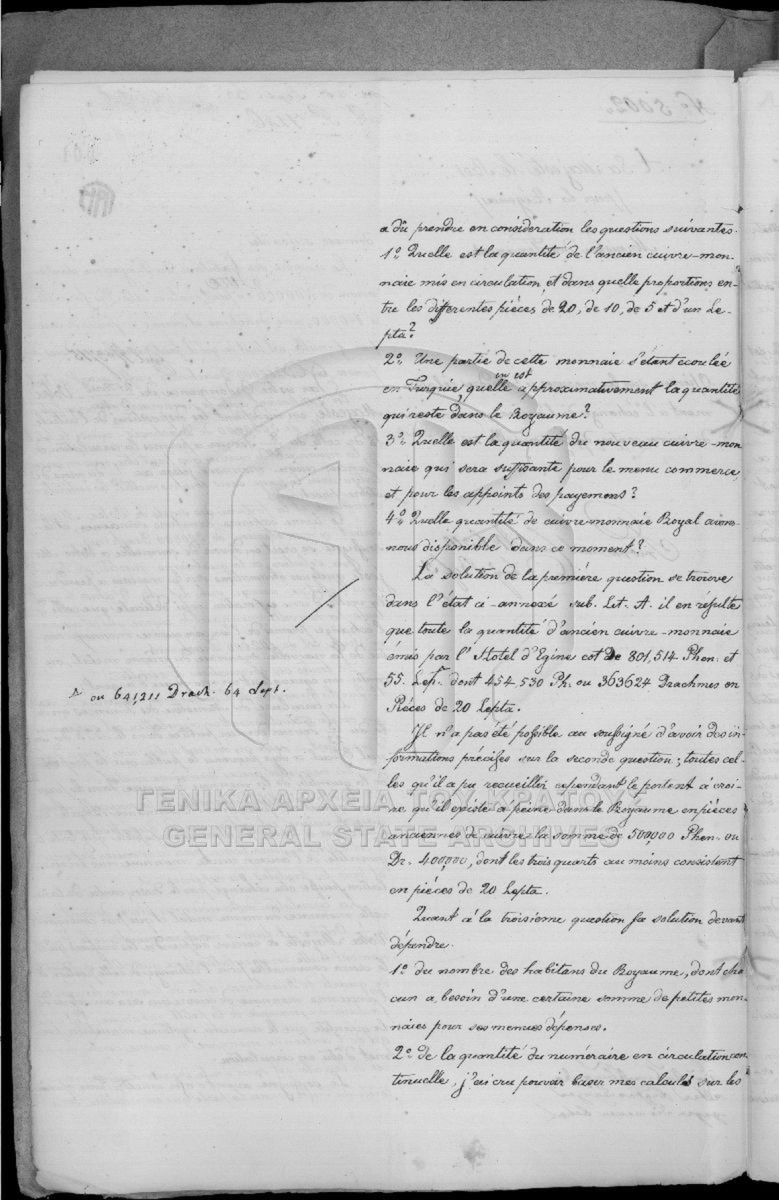 a dû prendre en consideration les questions suivantes.
1º Quelle est la quantité de l'ancien cuivre-mon-
naie mis en circulation, et dans quelle proportions en-
tre les differentes piéces de 20, de 10, de 5 et d'un Le-
pta?
2º Une partie de cette monnaie s'étant ecoulée
en Turquie, quelle en est approximativement la quantité
qui reste dans le Royaume?
3º Quelle est la quantité du nouveau cuivre-mon
naie qui sera suffisante pour le menu commerce,
et pour les appoints des payemens?
4º Quelle quantité de cuivre-monnaie Royal avons
nous disponible dans ce moment?
La solution de la premiére question se trouve
dans l'état ci-annexé sub. Lit. A. il en résulte
que toute la quantité d'ancien cuivre-monnaie
émis par l'Hotel d'Egine est de 801,514 Phen. et
55. Lept. dont 454,530 Ph. ou 363624 Drachmes en
Piéces de 20 Lepta.
ou 641,211 Drach. 64 Lept.
Il n'a pas été possible au soussigné d'avoir des in-
formations précises sur la seconde question; toutes cel-
les qu'il a pu recueillir cependant le portent à croi-
re qu'il existe à peine dans le Royaume en piéces
anciennes de cuivre la somme de 500,000 Phen. ou
Dr. 400,000, dont les trois quarts au moins consistent
en piéces de 20 Lepta.
Quant á la troisieme question sa solution devant
dépendre.
1º du nombre des habitans du Royaume, dont cha
cun a besoin d'une certaine somme de petites mon-
naies pour ses menues dépenses.
2º de la quantité du numéraire en circulation con
tinuelle, j'ai cru pouvoir baser mes calculs sur les
Nº 5002
ΓΕΝΙΚΑ ΑΡΧΕΙΑ ΤΟΥ ΚΡΑΤΟΥΣ
GENERAL STATE ARCHIVES